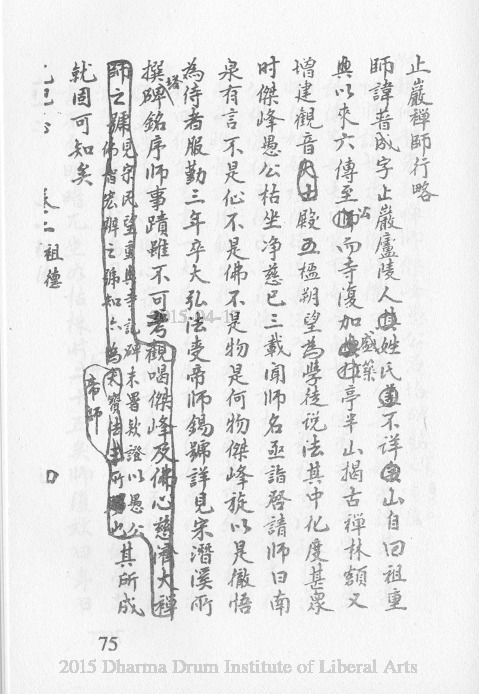 止巖禪師行略
師諱普成字止巖廬陵人其姓氏不詳山自曰祖重
興以來六傳至公而寺漫加盛築亭半山揭古禪林額又
增建觀音大士殿五楹朔望為學徒說法其中化度甚衆
时傑峰愚公枯坐净慈已三載聞師名亟詣啓請師曰南
泉有言不是心不是佛不是物是何物傑峰旋以是徹悟
為侍者服勤三年卒大弘法受帝師錫號詳見宋潛溪所
撰塔碑銘序師事蹟雖不可考觀喝傑峰及佛心慈濟大禪
師之號見宗氏望重興寺記碑未署欵證以愚公
佛智宏辯之號知亦為帝師所 也其所成
就固可知矣
祖德
75
2015-04-1
2015 Dharma Drum Institute of Liberal Arts